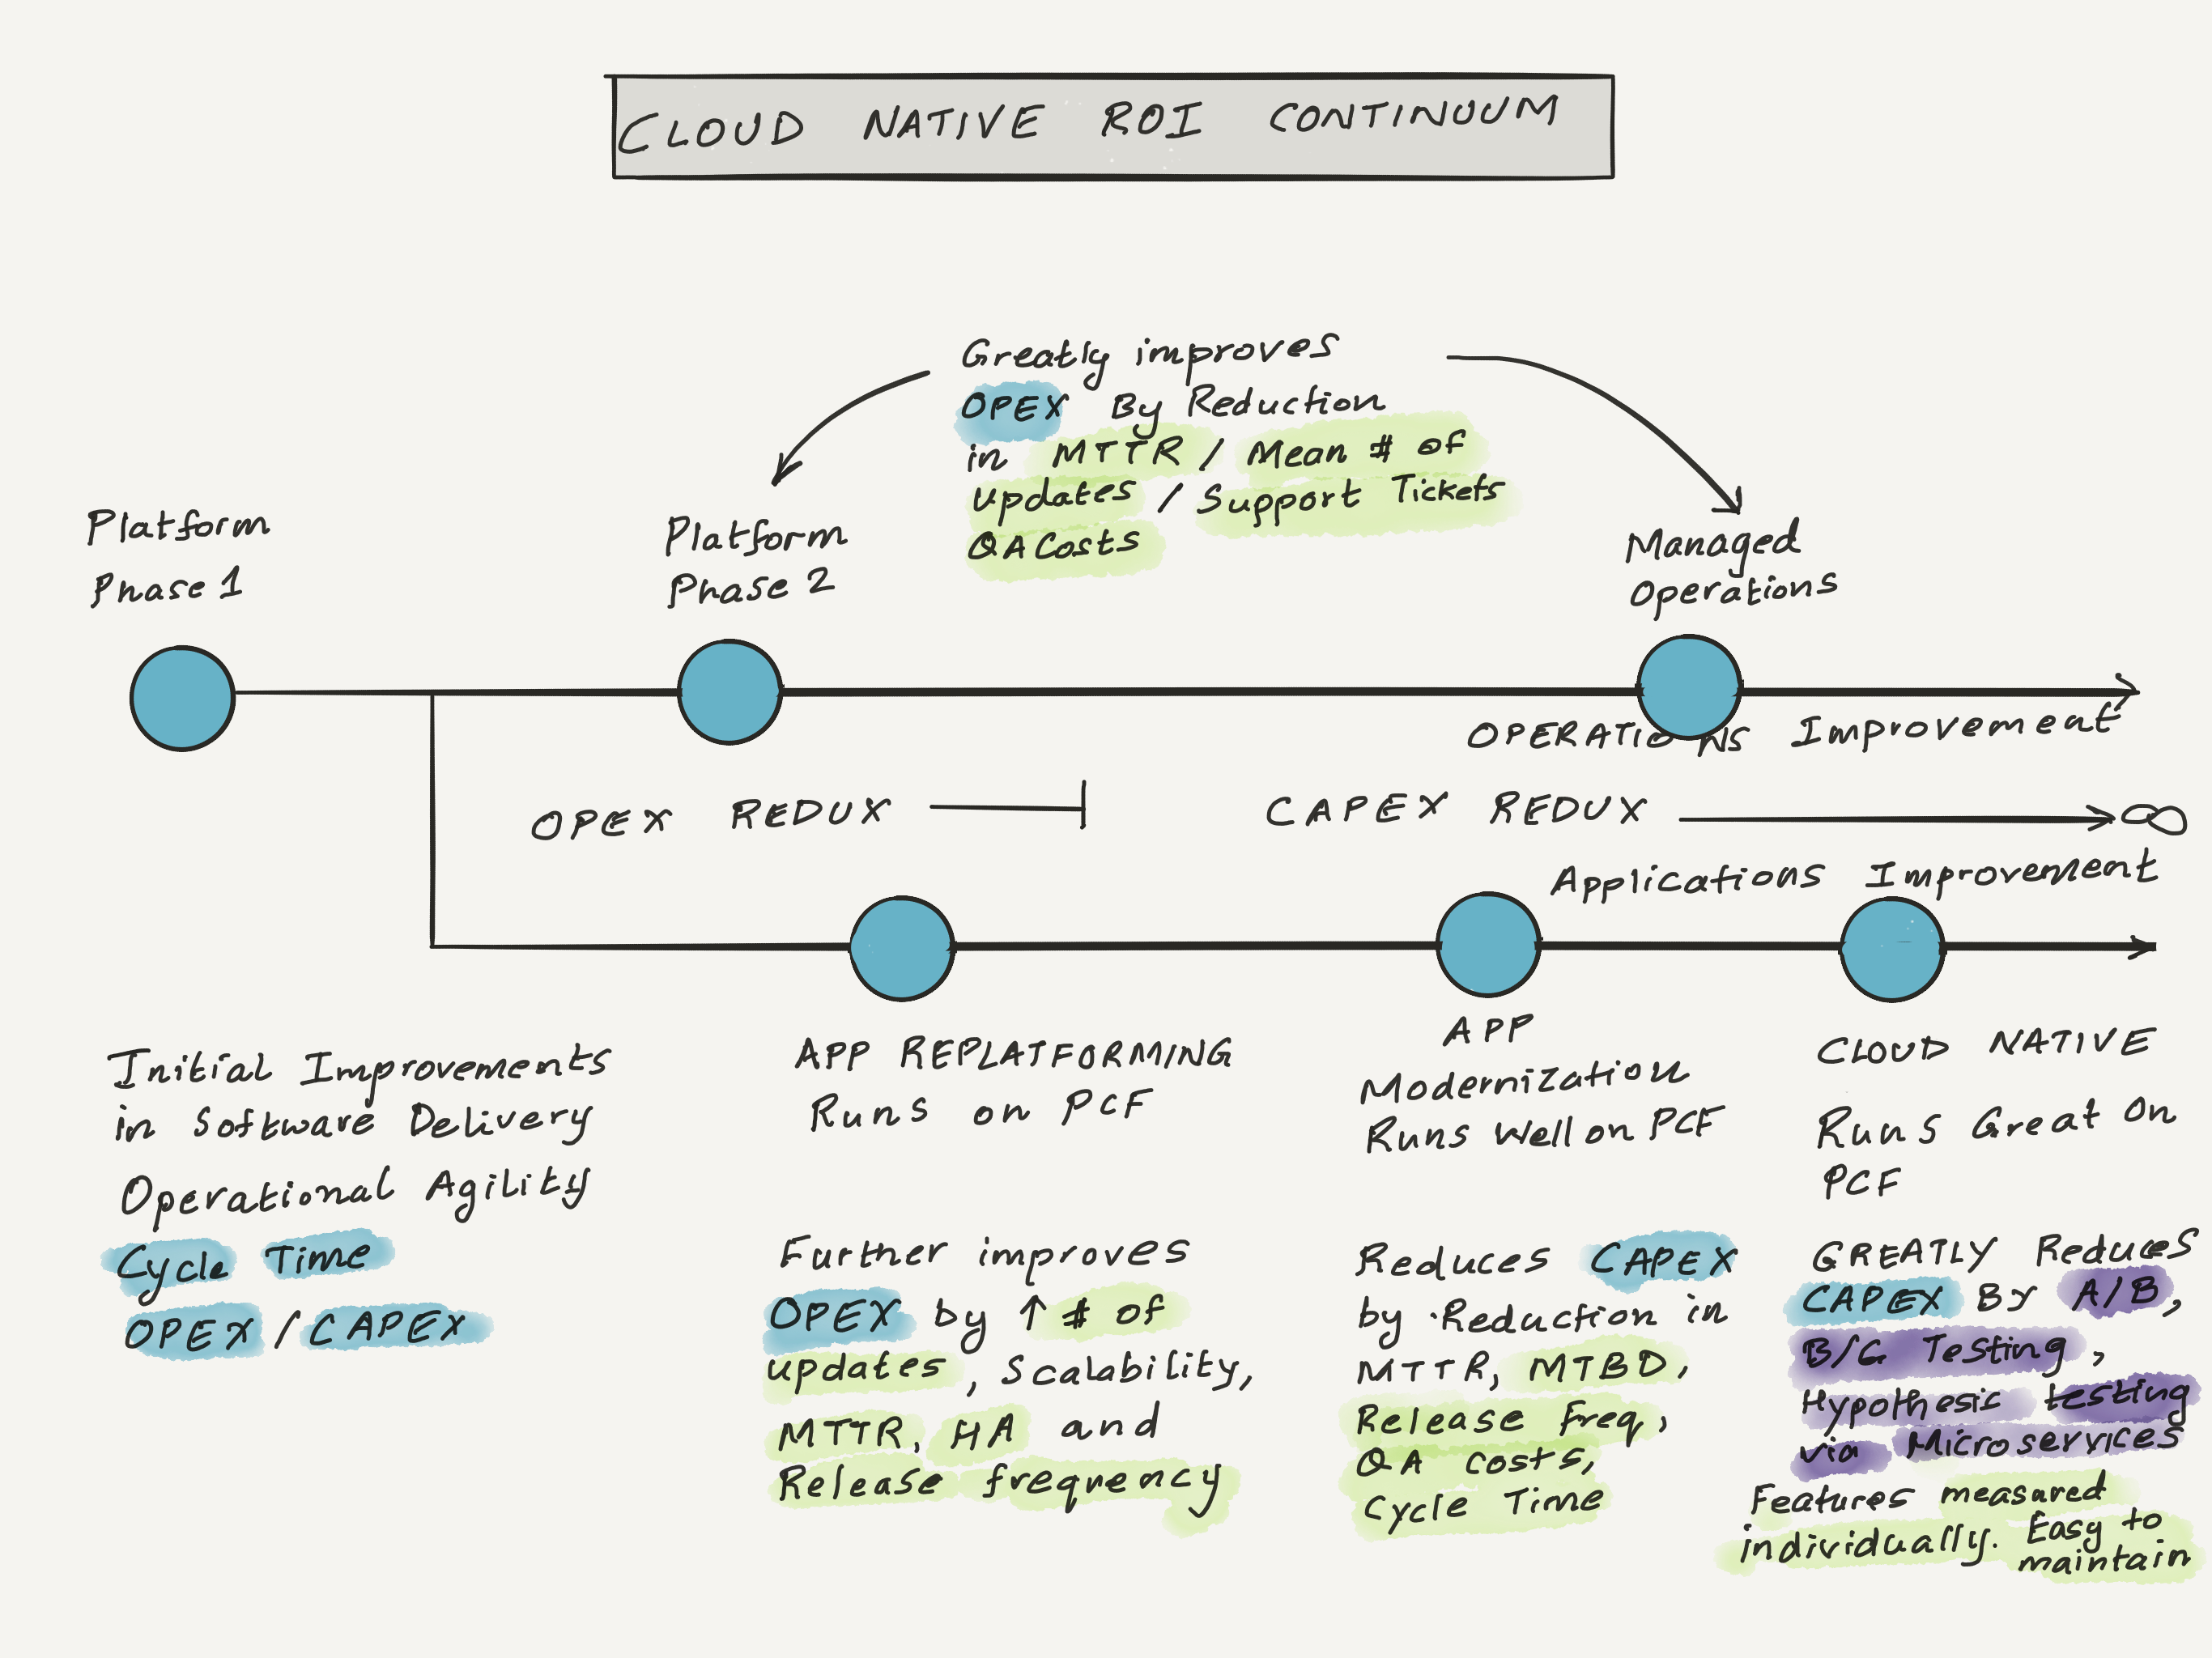 CLOUD NATIVE ROI CONTINUUM
Greatly improves
OPEX By Reduction
in MTTR / Mean # of
updates / Support Tickets
QA Costs
Platform
Phase 1
Platform
Phase 2
Managed
Operations
OPERATIONS Improvement
OPEX REDUX
CAPEX REDUX ∞
Applications Improvement
Initial Improvements
in Software Delivery
Operational Agility
Cycle Time
OPEX / CAPEX
APP REPLATFORMING
Runs on PCF
Further improves
OPEX by ↑ # of
updates, Scalability,
MTTR, HA and
Release frequency
APP
Modernization
Runs well on PCF
Reduces CAPEX
by Reduction in
MTTR, MTBD,
Release Freq,
QA costs,
Cycle Time
CLOUD NATIVE
Runs Great On
PCF
GREATLY Reduces
CAPEX By A/B,
B/G Testing,
Hypothesis testing
via Microservices
Features measured
individually. Easy to
maintain